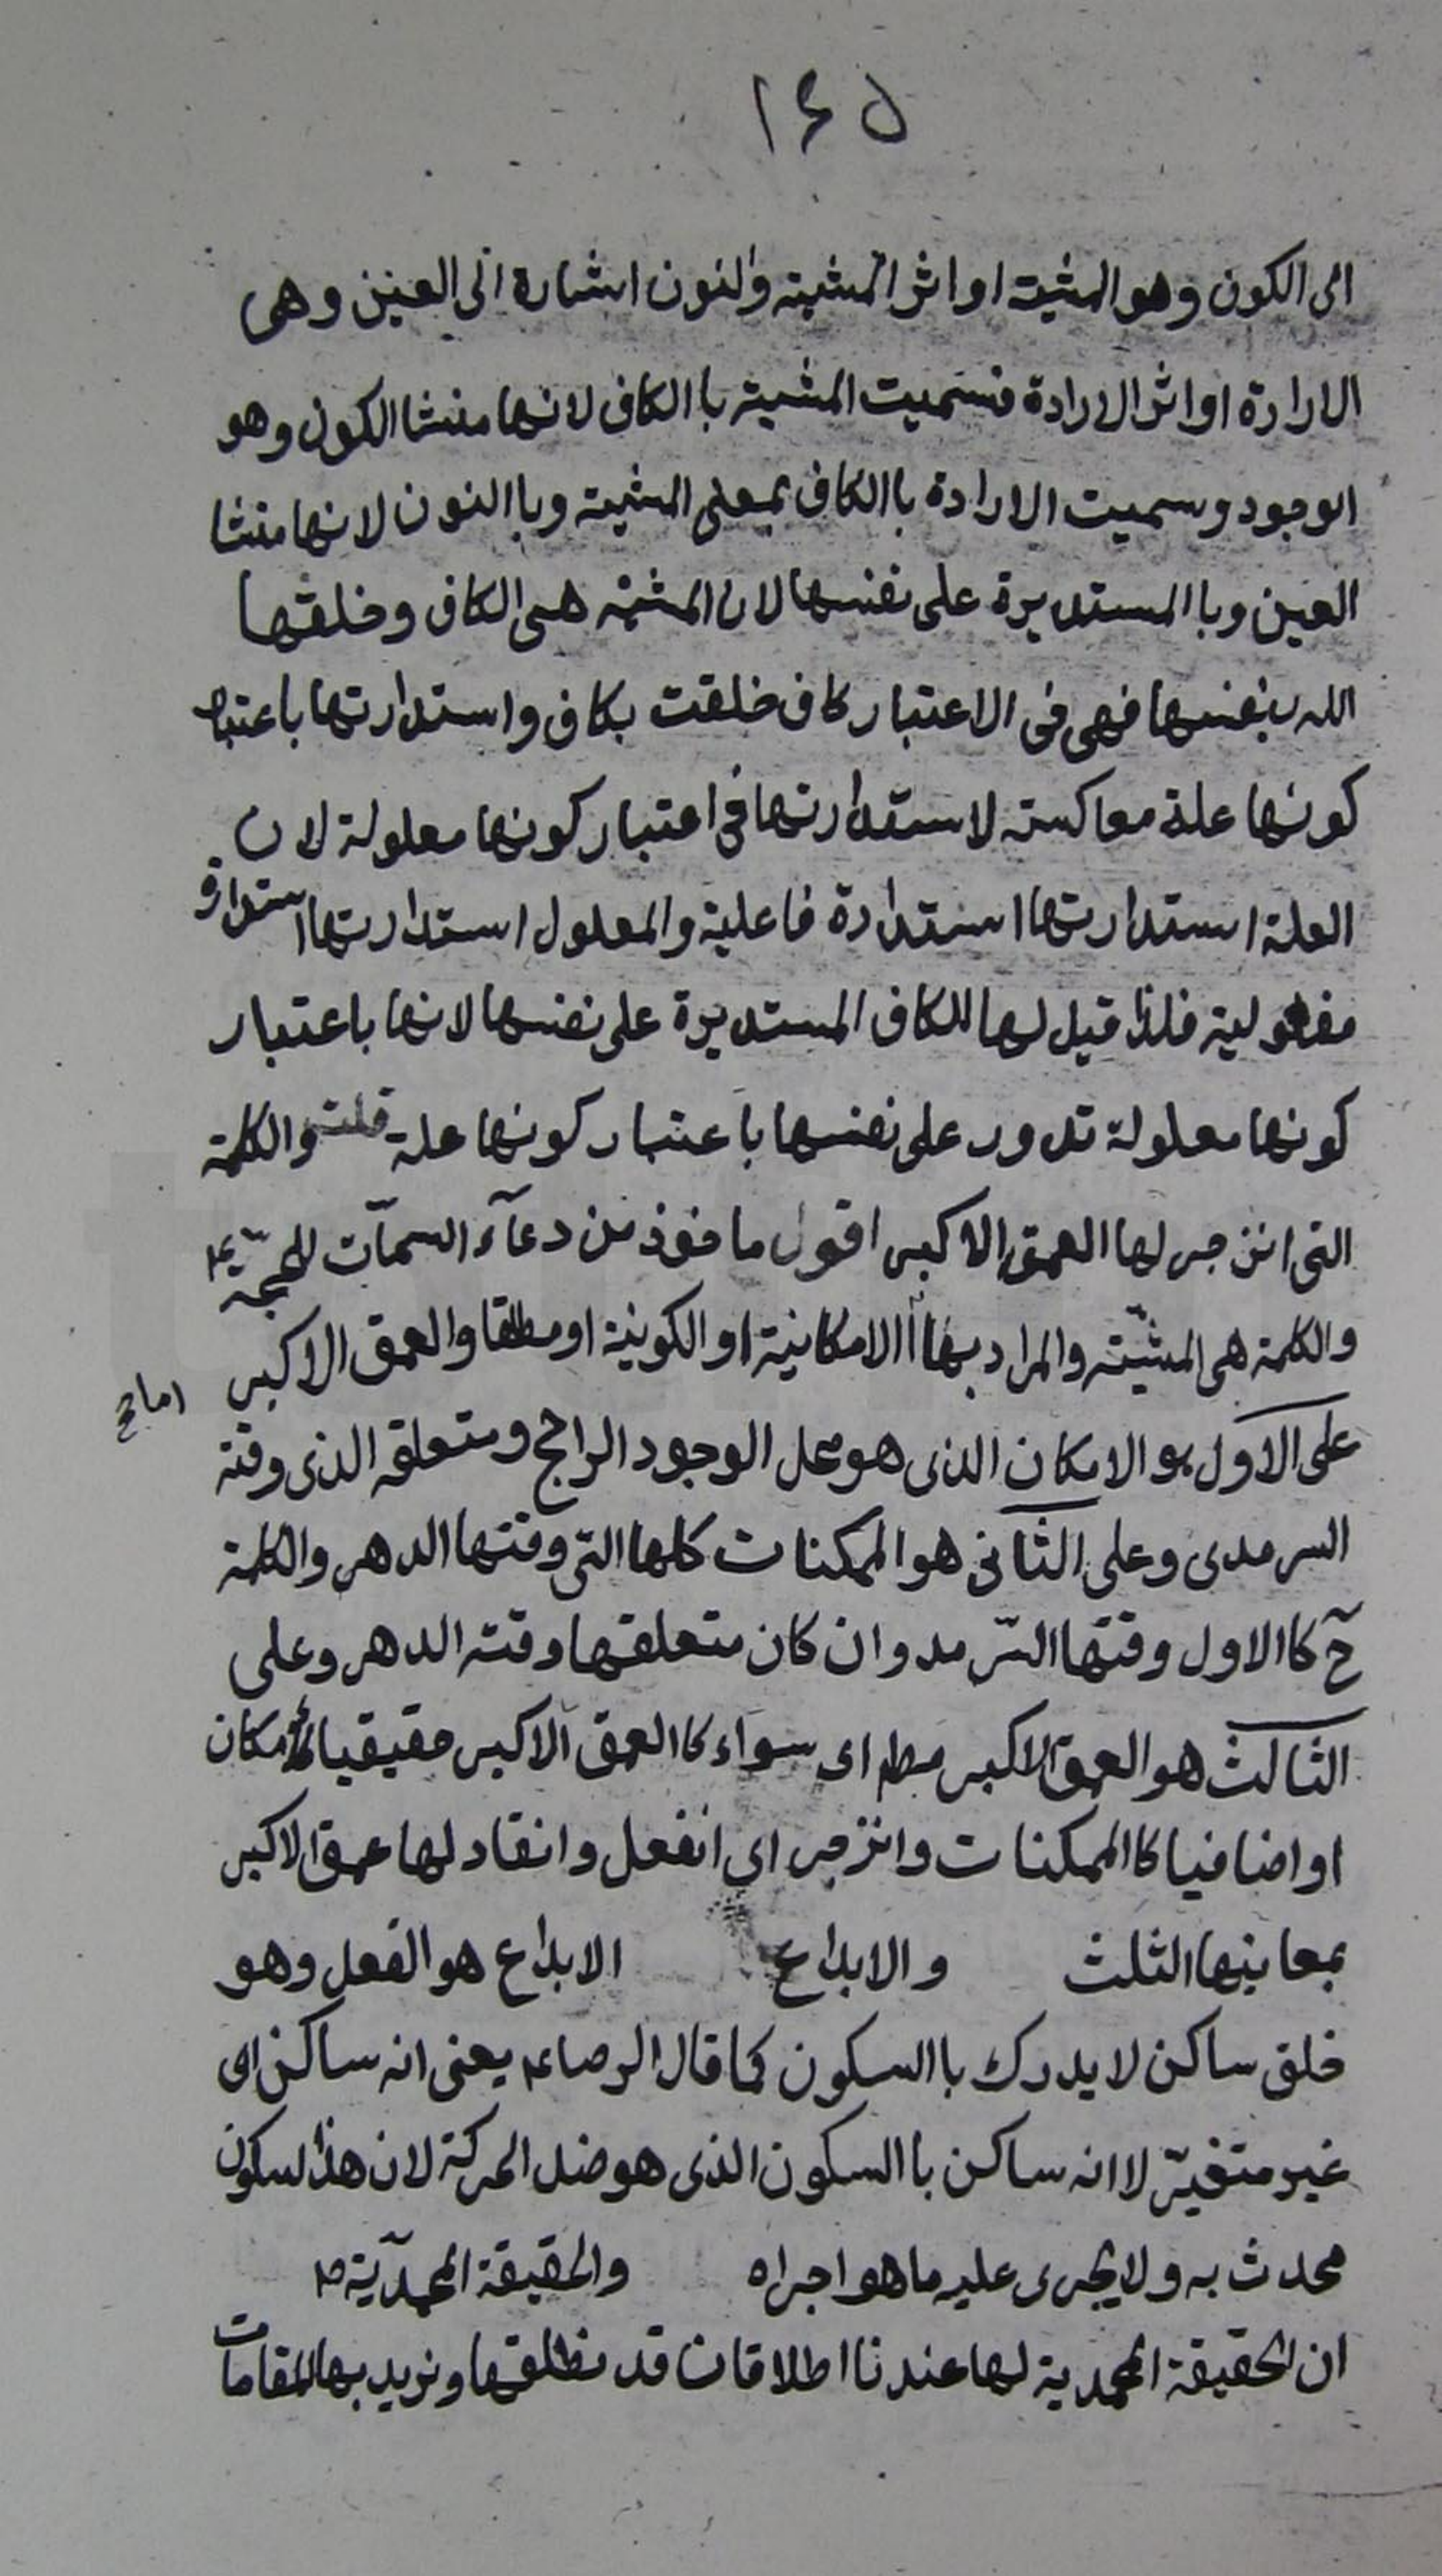 ١٤٥
الى الكون وهو المشية او اثر المشيته والنون اشارة الى العين وهى
الارادة او اثر الارادة فسميت المشيته باالكاف لانها منشا الكون وهو
الوجود وسميت الارادة باالكاف بمعلى المشيته وباالنون لانها منشا
العين وباالمستديرة على نفسها لان المشيته هى الكاف وخلقها
الله بنفسها فهى فى الاعتبار كاف خلقت بكاف واستدارتها باعتبار
كونها علة معاكسته لاستدارتها فى اعتبار كونها معلولة لان
العلة استدارتها استدارة فاعلية والمعلول استدارتها استدارة
مفعولية فلذا قيل لها الكاف المستديرة على نفسها لانها باعتبار
كونها معلولة تدور على نفسها باعتبار كونها علة قلت والكلمة
التى انزجر لها العمق الاكبر اقول ماخوذ من دعآء السمآت للحجة ع
والكلمة هى المشيّته والمراد بها االامكانية او الكونية او مطلقا والعمق الاكبر
على الاول هو الامكان الذى هو محل الوجود الراجح ومتعلقه الذى وقته
السرمدى وعلى الثانى هو الممكنات كلها التى وقتها الدهر والكلمة
ح كاالاول وقتها السّرمد وان كان متعلقها وقته الدهر وعلى
الثالث هو العمق الاكبر مطلم اى سواء كا العمق الاكبر حقيقيا كاالامكان
او اضافيا كاالممكنات وانزجر اى انفعل وانقاد لها عمق الاكبر
بمعانيها الثلث والابداع الابداع هو الفعل وهو
خلق ساكن لا يدرك باالسكون كما قال الرضا ع يعنى انه ساكن اى
غير متغيّر لا انه ساكن باالسكون الذى هو ضد الحركة لان هذا لسكون
محدث به ولا يجرى عليه ما هو اجراه والحقيقة المحمدّية ص
ان الحقيقة المحمدية لها عندنا اطلاقات قد نطلقها ونريد بها المقامات